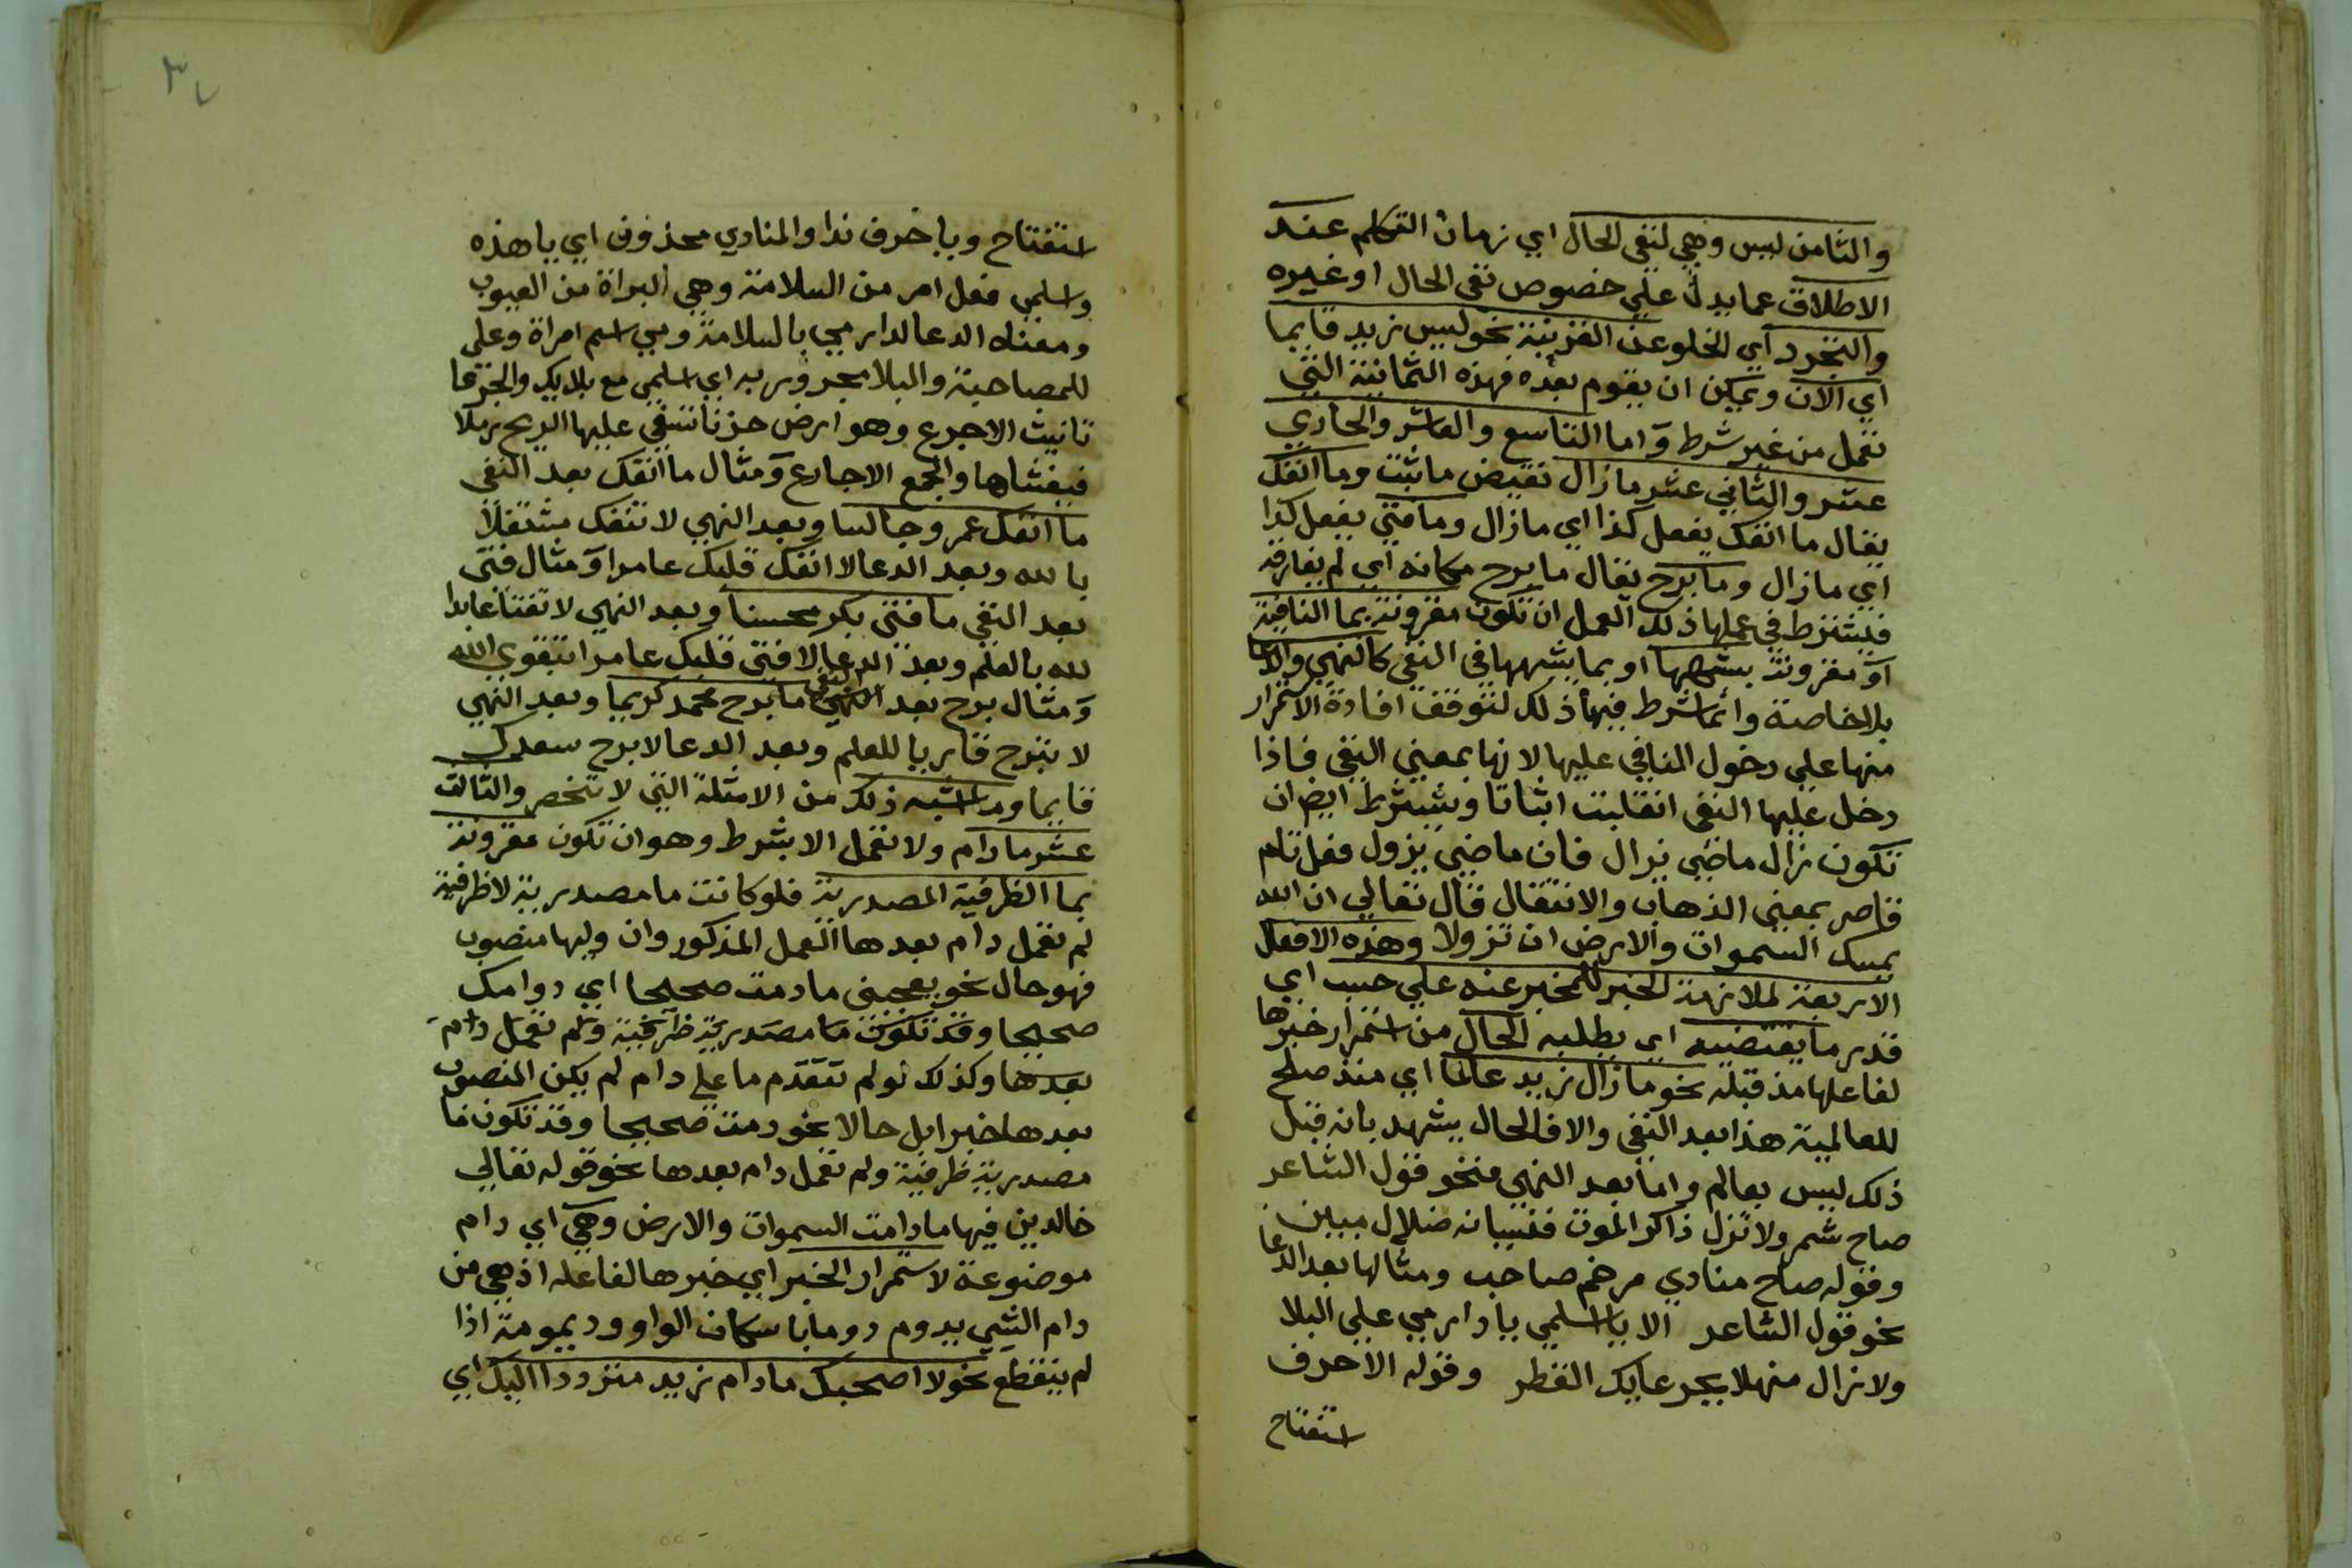 والثامن ليس وهي لنفي الحال اي زمان التكلم عند
الاطلاق عما يدل علي خصوص نفي الحال او غيره
والتجرد اي الخلو عن القرينة نحو ليس زيد قايما
اي الان ويمكن ان يقوم بعده فهذه الثمانية التي
تعمل من غير شرط واما التاسع والعاشر والحادي
عشر والثاني عشر ما زال نقيض ما ثبت وما انفك
يقال ما انفك يفعل كذا اي ما زال وما فتي يفعل كذا
اي ما زال وما برح يقال ما برح مكانه اي لم يفارقه
فيشترط في عملها ذلك العمل ان تكون مقرونة بما النافية
او مقرونة بشبهها او بما يشبهها في النفي كالنهي والدعا
بلا خاصة وانما شرط فيها ذلك لتوقف افادة الاستمرار
منها علي دخول النافي عليها لانها بمعني النفي فاذا
دخل عليها النفي انقلبت اثباتا ويشترط ايض ان
تكون زال ماضي يزال فان ماضي يزول فعل تام
قاصر بمعني الذهاب والانتقال قال تعالي ان الله
يمسك السموات والارض ان تزولا وهذه الافعال
الاربعة لملازمة الخبر للمخبر عنه علي حسب اي
قدر ما يقتضيه اي يطلبه الحال من استمرار خبرها
لفاعلها مذ قبله نحو ما زال زيد عالما اي منذ صلح
للعالمية هذا بعد النفي والا فالحال يشهد بانه قبل
ذلك ليس بعالم واما بعد النهي فنحو قول الشاعر
صاح شمر ولا تزل ذاكر الموت فنسيانه ضلال مبين
وقوله صاح منادي مرخم صاحب ومثالها بعد الدعا
نحو قول الشاعر الا يا اسلمي يا دارمي علي البلا
ولا زال منهلا بجرعايك القطر وقوله الا حرف
استفتاح
٣٧
استفتاح ويا حرف ندا والمنادي محذوف اي يا هذه
واسلمي فعل امر من السلامة وهي البراة من العيوب
ومعناه الدعا لدارمي بالسلامة ومي اسم امراة وعلي
للمصاحبة والبلا مجرور به اي اسلمي مع بلايك والجرعا
تانيث الاجرع وهو ارض حزنا تسفي عليها الريح رملا
فيغشاها والجمع الاجارع ومثال ما انفك بعد النفي
ما انفك عمرو جالسا وبعد النهي لا تنفك مشتغلا
بالله وبعد الدعا لا انفك قلبك عامرا ومثال فتي
بعد النفي ما فتي بكر محسنا وبعد النهي لا تفتا عابدا
لله بالعلم وبعد الدعا لا فتي قلبك عامرا بتقوي الله
ومثال برح بعد النفي ما برح محمد كريما وبعد النهي
لا تبرح قاريا للعلم وبعد الدعا لا برح سعدك
قايما وما اشبه ذلك من الامثلة التي لا تنحصر والثالث
عشر ما دام ولا تعمل الا بشرط وهو ان تكون مقرونة
بما الظرفية المصدرية فلو كانت ما مصدرية لا ظرفية
لم تعمل دام بعدها العمل المذكور وان وليها منصوب
فهو حال نحو يعجبني ما دمت صحيحا اي دوامك
صحيحا وقد تكون ما مصدرية ظرفية ولم تعمل دام
بعدها وكذلك لو لم تتقدم ما علي دام لم يكن المنصوب
بعدها خبرا بل حالا نحو دمت صحيحا وقد تكون ما
مصدرية ظرفية ولم تعمل دام بعدها نحو قوله تعالي
خالدين فيها ما دامت السموات والارض وهي اي دام
موضوعة لاستمرار الخبر اي خبرها لفاعله اذ هي من
دام الشيي يدوم دوما باسكان الواو وديمومة اذا
لم ينقطع نحو لا اصحبك ما دام زيد مترددا اليك اي